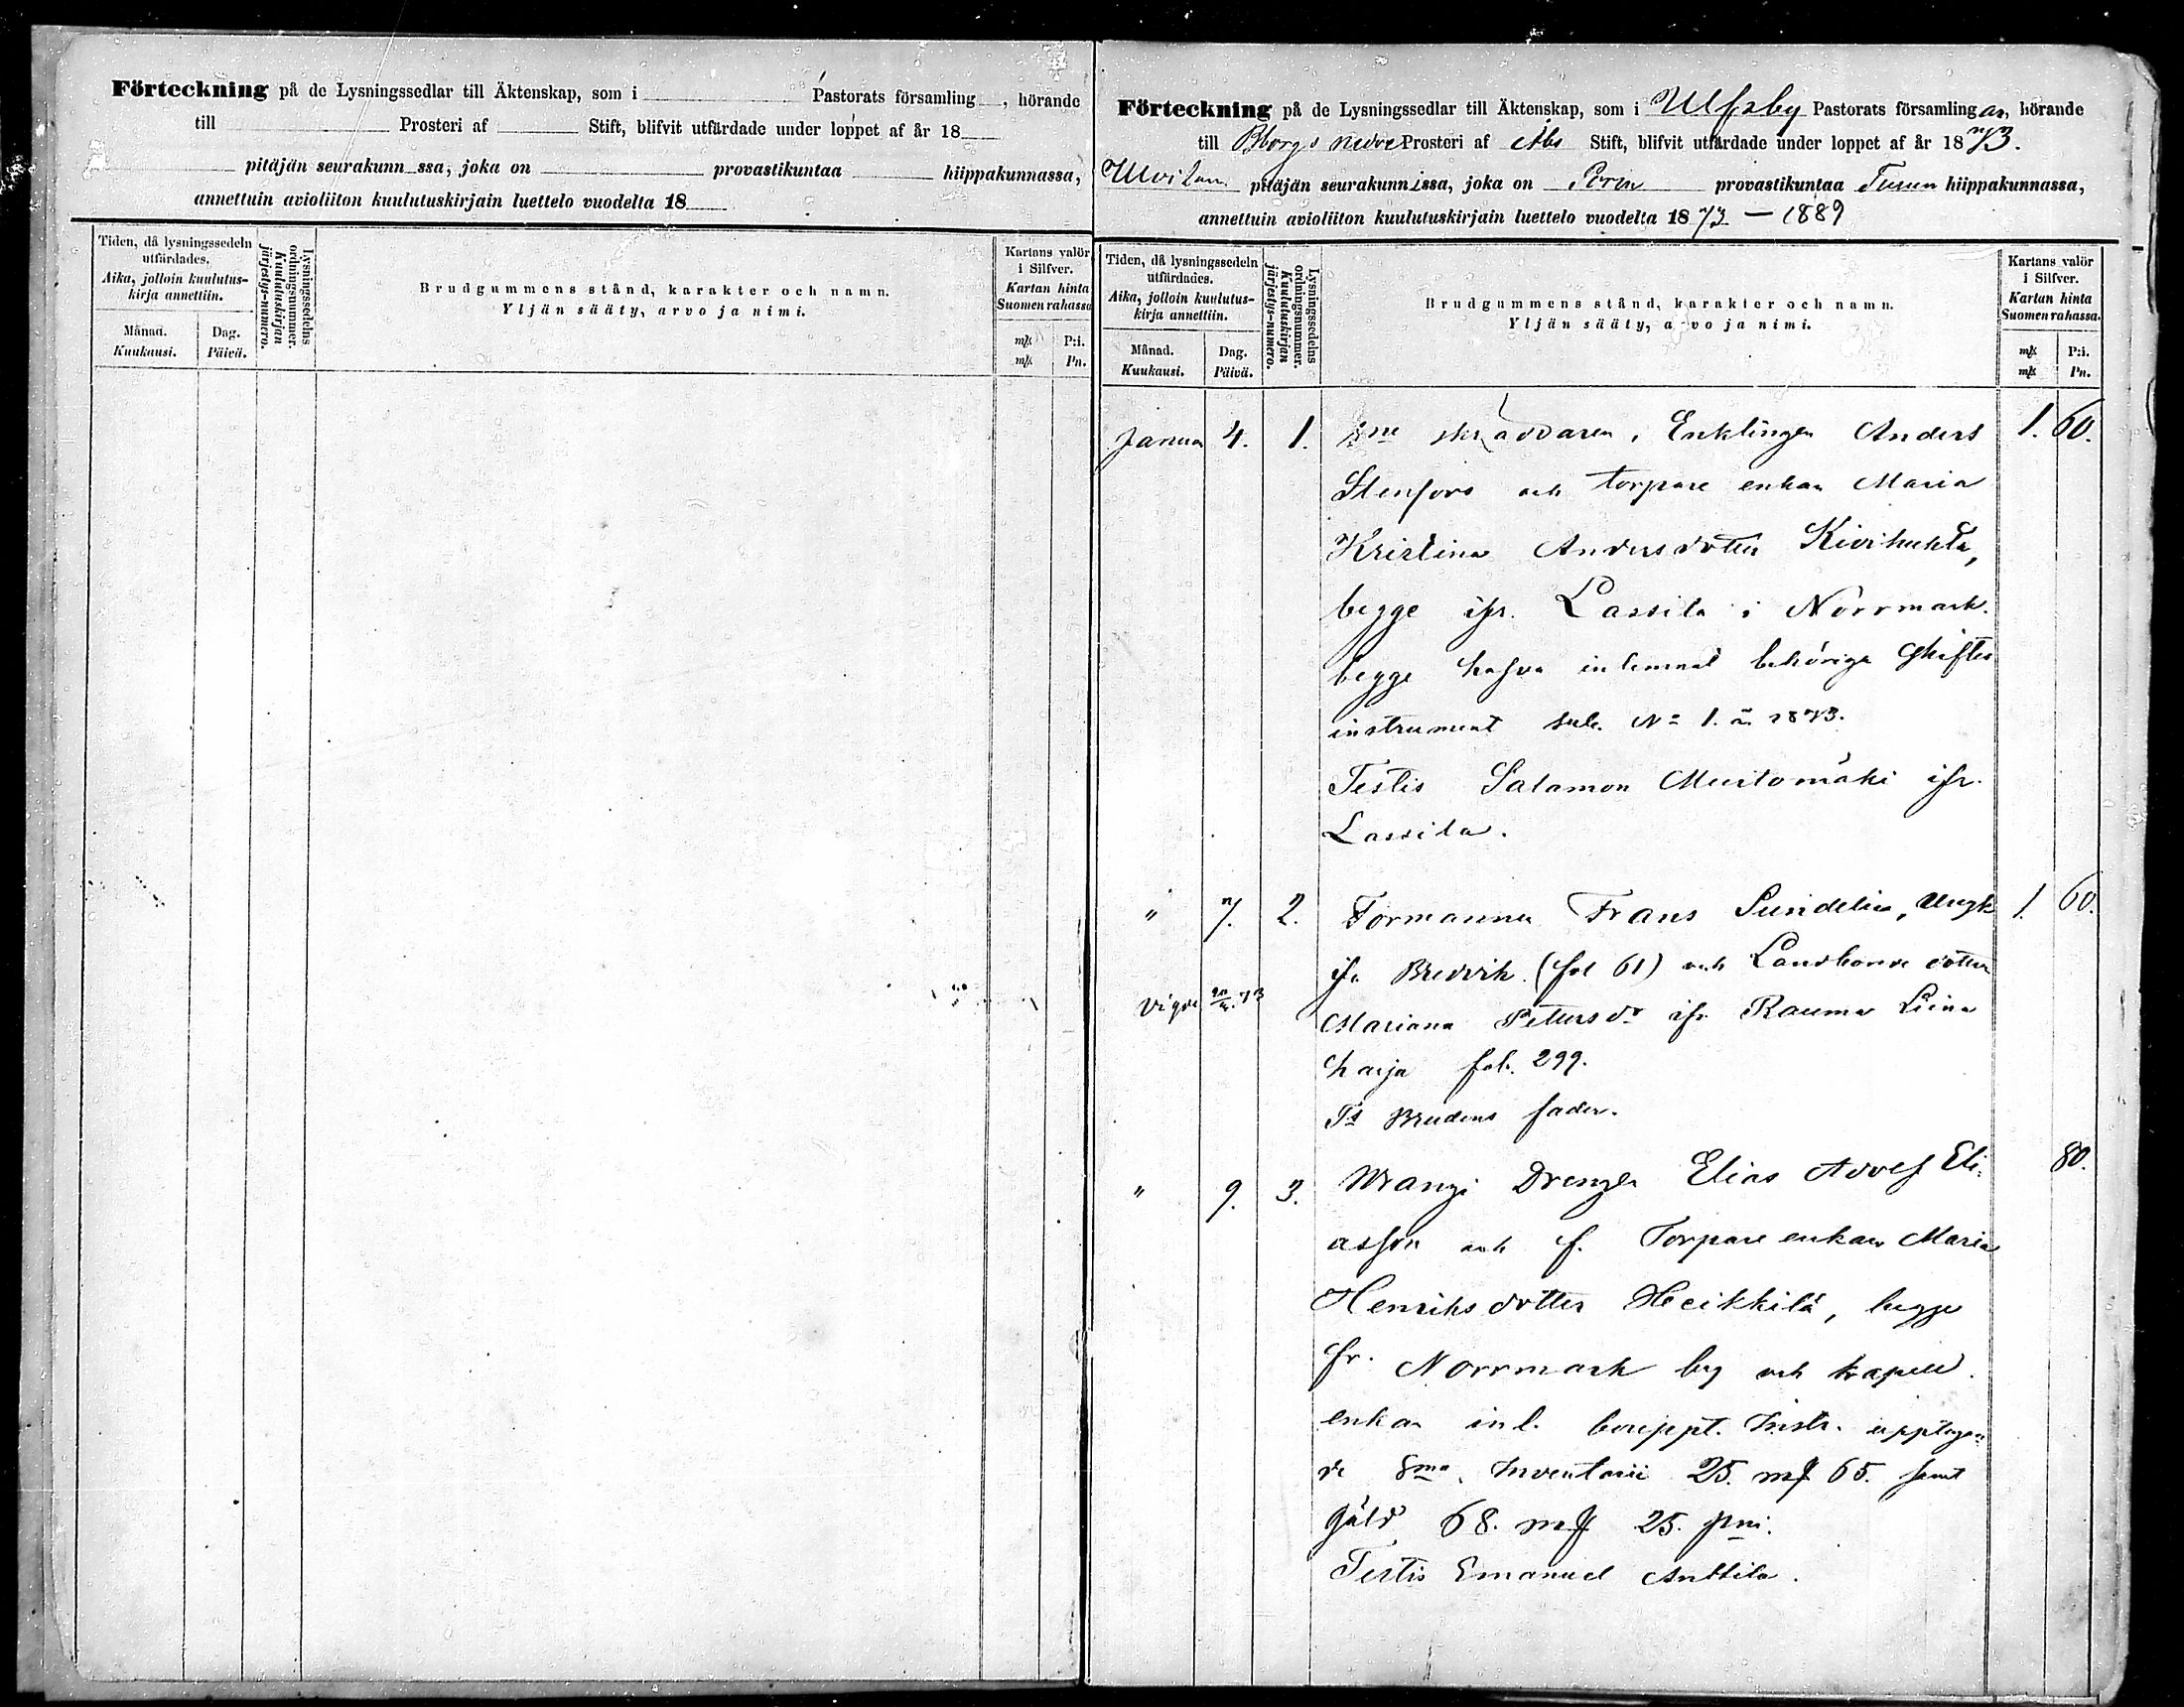 Förteckning på de Lysningssedlar till Äktenskap, som i Pastorats församling , hörande
till Prosteri af Stift, blifvit utfärdade under loppet af år 18
pitäjän seurakunn ssa, joka on provastikuntaa hiippakunnassa,
annettuin avioliiton kuulutuskirjain luettelo vuodelta 18
Tiden, då lysningssedeln
utfärdades.
Aika, jolloin kuulutus-
kirja annettiin.
Månad.
Kuukausi.
Dag.
Päivä.
Lysningssedelns
ordningsnummer.
Kuulutuskirjan
järjestys-numero.
Brudgummens stånd, karakter och namn.
Yljän sääty, arvo ja nimi.
Kartans valör
i Silfver.
Kartan hinta
Suomen rahassa
mk P:i.
mk Pn.
Förteckning på de Lysningssedlar till Äktenskap, som i Ulfsby Pastorats församlingar, hörande
till Bborgs nedre Prosteri af Åbo Stift, blifvit utfärdade under loppet af år 1873.
Ulvilan pitäjän seurakunnissa, joka on Porin provastikuntaa Turun hiippakunnassa,
annettuin avioliiton kuulutuskirjain luettelo vuodelta 1873 — 1889
Tiden, då lysningssedeln
utfärdades.
Aika, jolloin kuulutus-
kirja annettiin.
Månad.
Kuukausi.
Dag.
Päivä.
Lysningssedelns
ordningsnummer.
Kuulutuskirjan
järjestys-numero.
Brudgummens stånd, karakter och namn.
Yljän sääty, arvo ja nimi.
Kartans valör
i Silfver.
Kartan hinta
Suomen rahassa.
mk P:i.
mk Pn.
Janua 4. 1. skräddaren, Enklingen Anders 1. 60.
Stenfors och torpare enkan Maria
Kristina Andersdotter Kivihuhta,
begge ifr. Lassila i Norrmark.
begge hafva inlemnat behöriga skiftes
instrument sub. No 1. 1873.
Testis Salamon Mustomäki ifr.
Lassila.
" 7. 2. Formannen Frans Sundelin, Ungk 1. 60.
ifr Bredvik (fol 61) och Landbonde dottren
Vigde 73
Mariana Pettersdr ifr Rauma Liina
harja fol. 299.
Ts Brudens fader.
" 9. 3. Drengen Elias Adolf Eli= 80.
asson och f. Torpare enkan Maria
Henriksdotter Heikkilä, begge
fr. Norrmark by och kapell.
enkan inl. bouppt. Instr. upptagan=
de Inventarii 25. mk 65. samt
gäld 68. mk 25. pni.
Testis Emanuel Anttila.